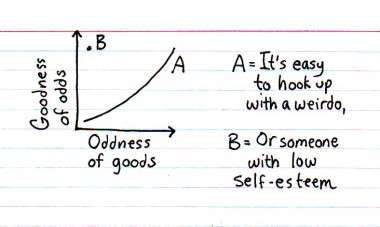 Goodness
of odds
B
A
Oddness
of goods
A = It's easy
to hook up
with a weirdo,
B = Or someone
with low
self-esteem